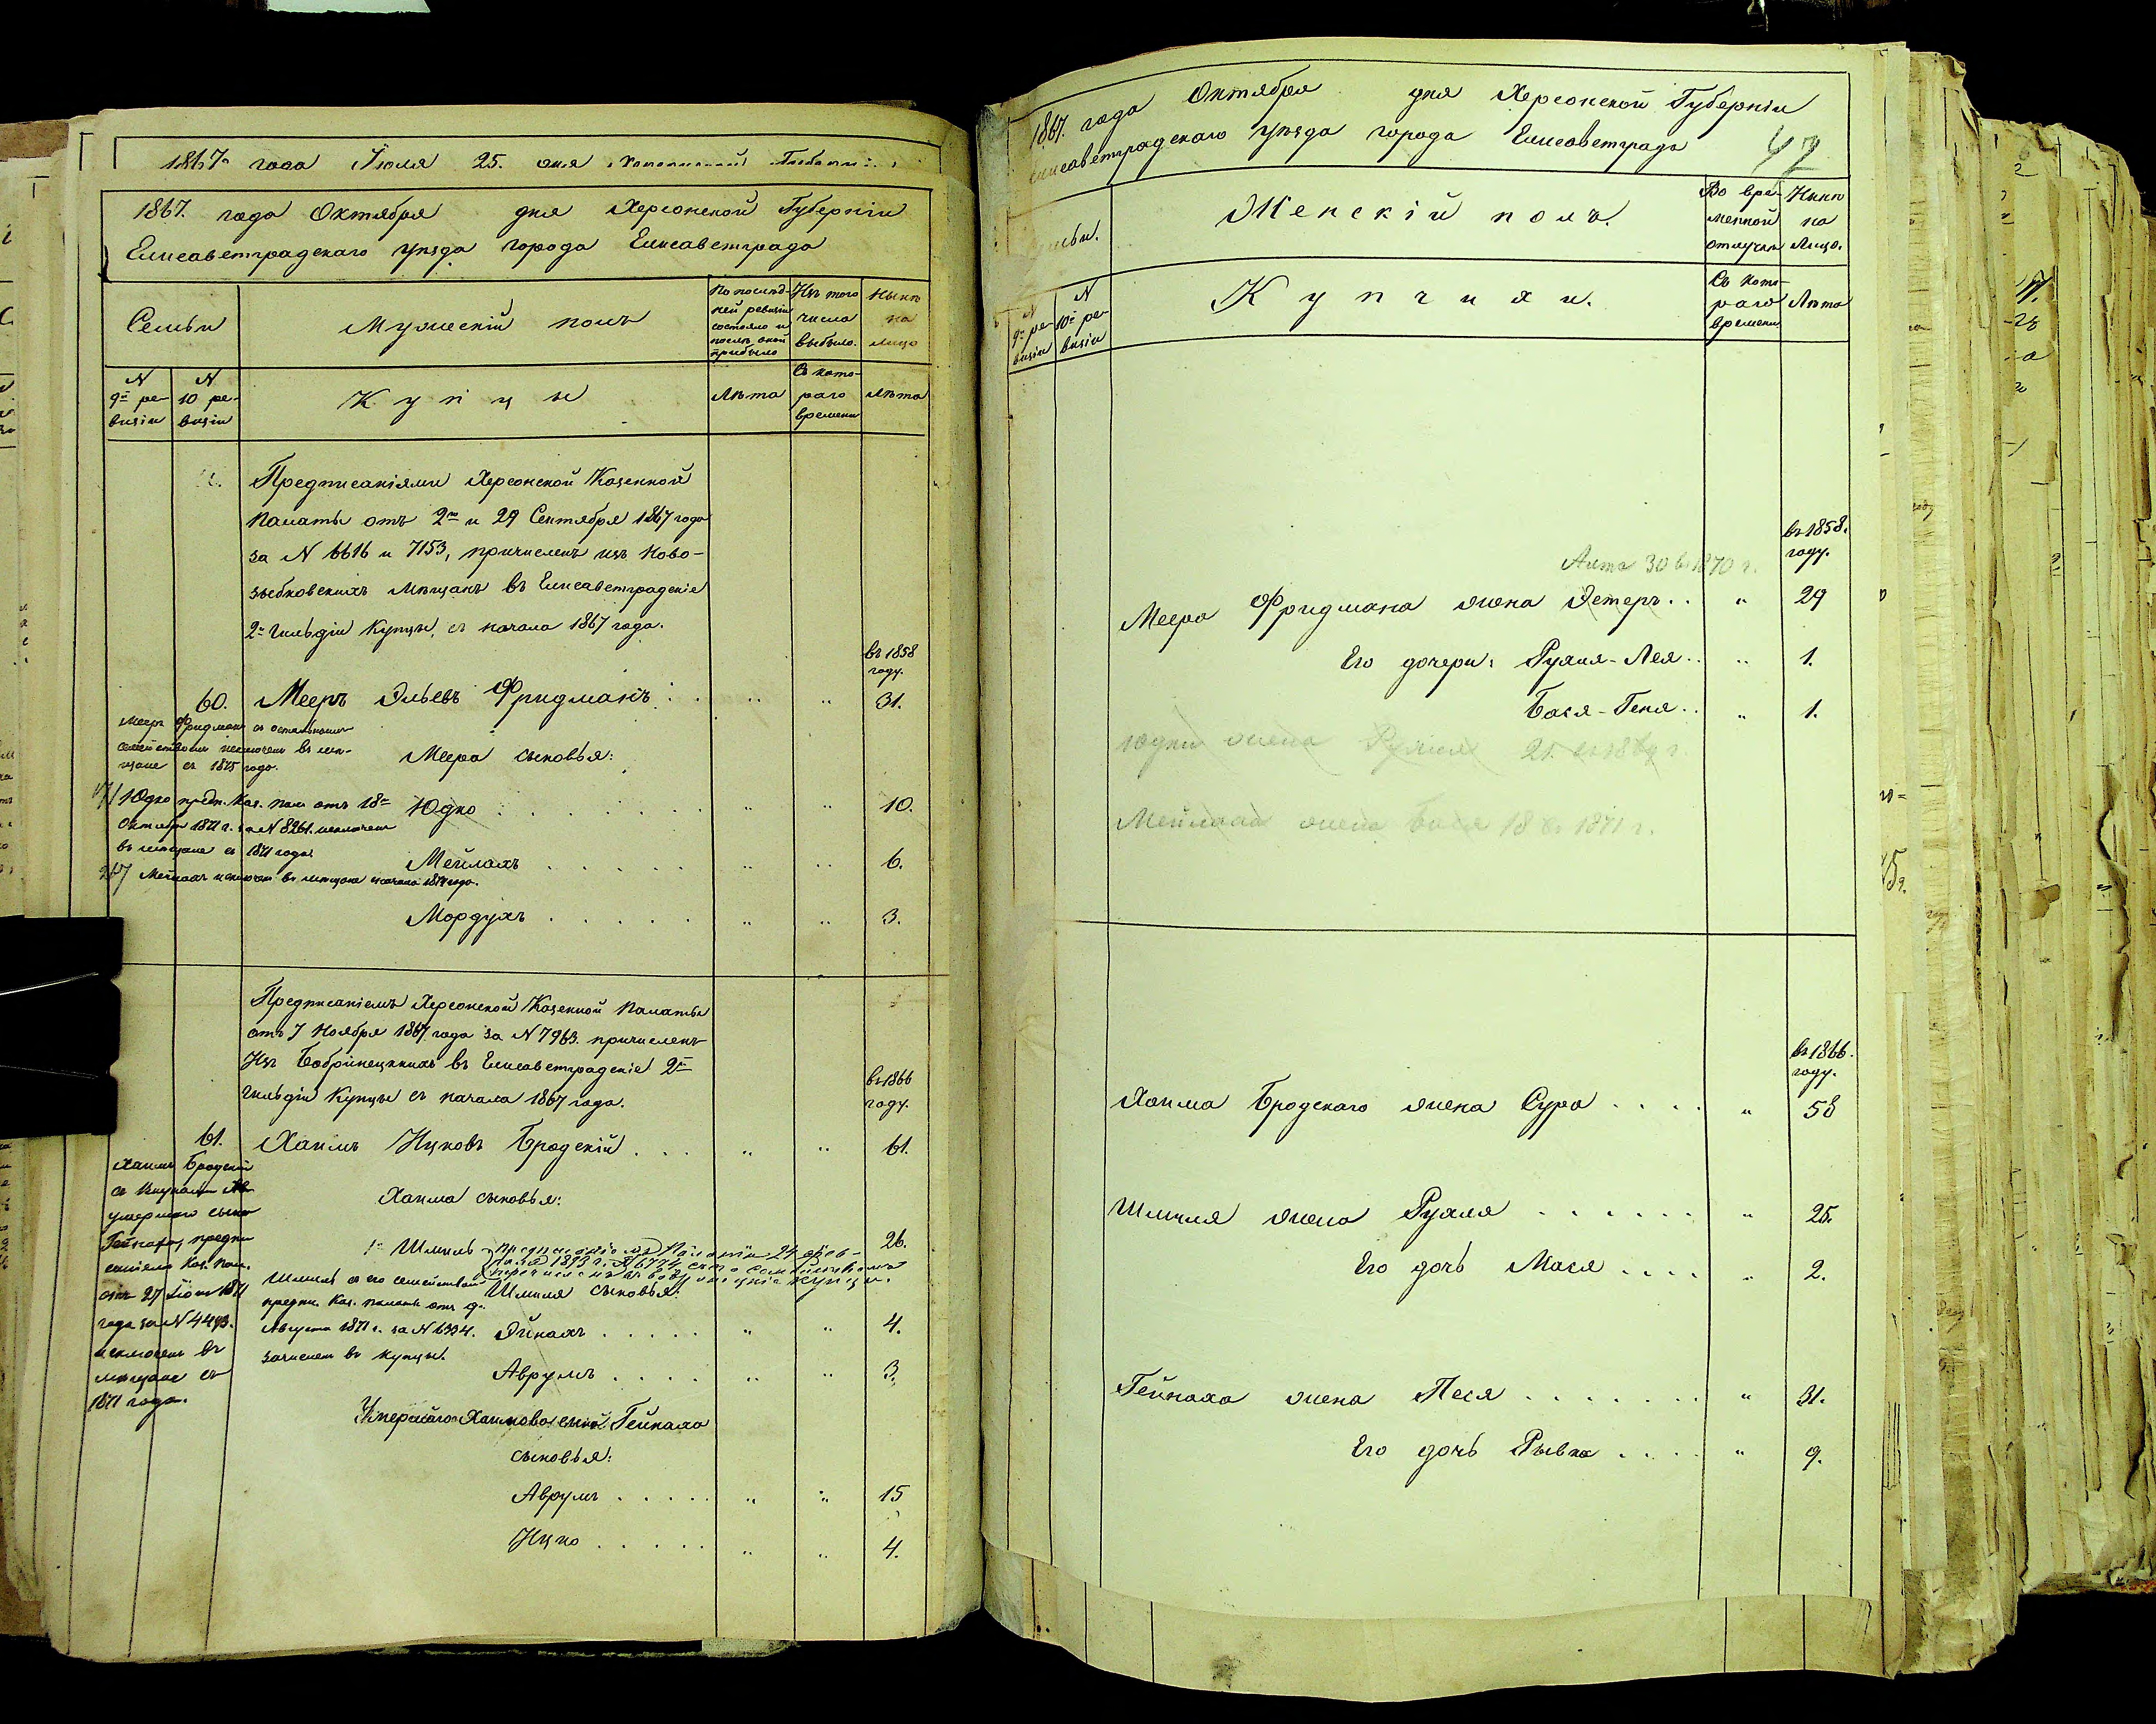 1867 года Іюля 25. дня
1867. года Октября дня Херсонской Губерніи
Елисаветградскаго уѣзда города Елисаветграда
Семьи
Мужескій полъ
По послѣд-
ней ревизіи
состояло и
послѣ оной
прибыло
Изъ того
числа
выбыло.
Нынѣ
на
лицо
N
9й ре-
визіи
N
10 ре-
визіи
Купцы
Лѣта
Съ кото-
раго
времени
Лѣта
Предписаніями Херсонской Казенной
Палаты отъ 2го и 29 Сентября 1867 года
за N 6616 и 7153, причисленъ изъ Ново-
зыбковскихъ мѣщанъ въ Елисаветградскіе
2й гильдіи Купцы, съ начала 1867 года.
въ 1858
году.
60. Мееръ Эльевъ Фридманъ . . " " 31.
Мееръ Фридманъ съ остальнымъ
семействомъ исключенъ въ мѣ-
щане съ 1875 года.
Меера сыновья:
Юдко " " 10.
Юдко предп. Каз. пал. отъ 18го
Октября 1871 г. за N 8261. исключенъ
въ мѣщане съ 1871 года.
Мейлахъ " " 6.
Мейлахъ исключ. въ мѣщане съ начала года.
Мордухъ " " 3.
Предписаніемъ Херсонской Казенной Палаты
отъ 7 Ноября 1867 года за N 7963. причисленъ
Изъ Бобринецкихъ въ Елисаветградскіе 2й
гильдіи Купцы съ начала 1867 года.
въ 1866
году.
61. Хаимъ Ицковъ Бродскій . . . " " 61.
Хаимъ Бродскій
съ внуками
умершаго сына
Гейнаха, предпи
саніемъ Каз. Пал.
отъ 27 Іюля 1871
года за N 4493.
исключенъ въ
мѣщане съ
1871 года.
Хаима сыновья:
1й Шмиль 26.
предписаніемъ Палаты 24 фев-
раля 1893 г. N 6774 съ его семействомъ
перечисленъ въ купцы.
Шмиль съ его семействомъ
предп. Каз. палаты отъ 9го
Августа 1871 г. за N 6334.
зачисленъ въ купцы.
Шмиля сыновья:
Эйнахъ . . . . . " " 4.
Аврумъ . . . . " " 3.
Умершаго Хаимова сына Гейнаха
сыновья:
Аврумъ . . . . . " " 15
Ицко . . . . . " " 4.
1867. года Октября дня Херсонской Губерніи
Елисаветградскаго уѣзда города Елисаветграда
42
Семьи.
Женскій полъ.
Во вре-
менной
отлучкѣ
Нынѣ
на
Лицо.
N
9й ре-
визіи
N
10й ре-
визіи
Купчихи.
Съ кото-
раго
времени
Лѣта
въ 1858.
году.
Лѣта 30 въ 1870 г.
Меера Фридмана жена Эстеръ . . " 29
Его дочери: Рухля-Лея . . " 1.
Бася-Геня . . " 1.
Юдки жена Рухля 21. въ 1869 г.
Мейлаха жена Бася 18 въ 1871 г.
въ 1866.
году.
Хаима Бродскаго жена Сура . . . . " 58
Шмиля жена Рухля . . . . . . " 25.
Его дочь Мася . . . . " 2.
Гейнаха жена Песя . . . . . . . " 31.
Его дочь Рывка . . . . " 9.